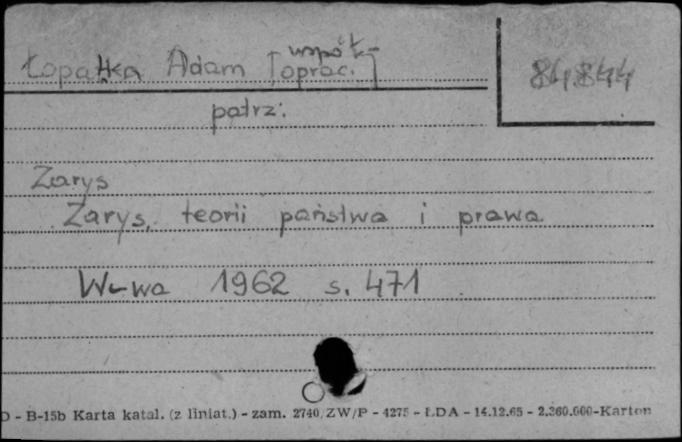 Łopatka Adam [współ-
oprac.]
84.844
patrz:
Zarys
Zarys teorii państwa i prawa
W-wa 1962 s. 471
D - B-15b Karta katal. (z liniat.) - zam. 2740/ZW/P - 4275 - ŁDA - 14.12.65 - 2.360.000-Karton